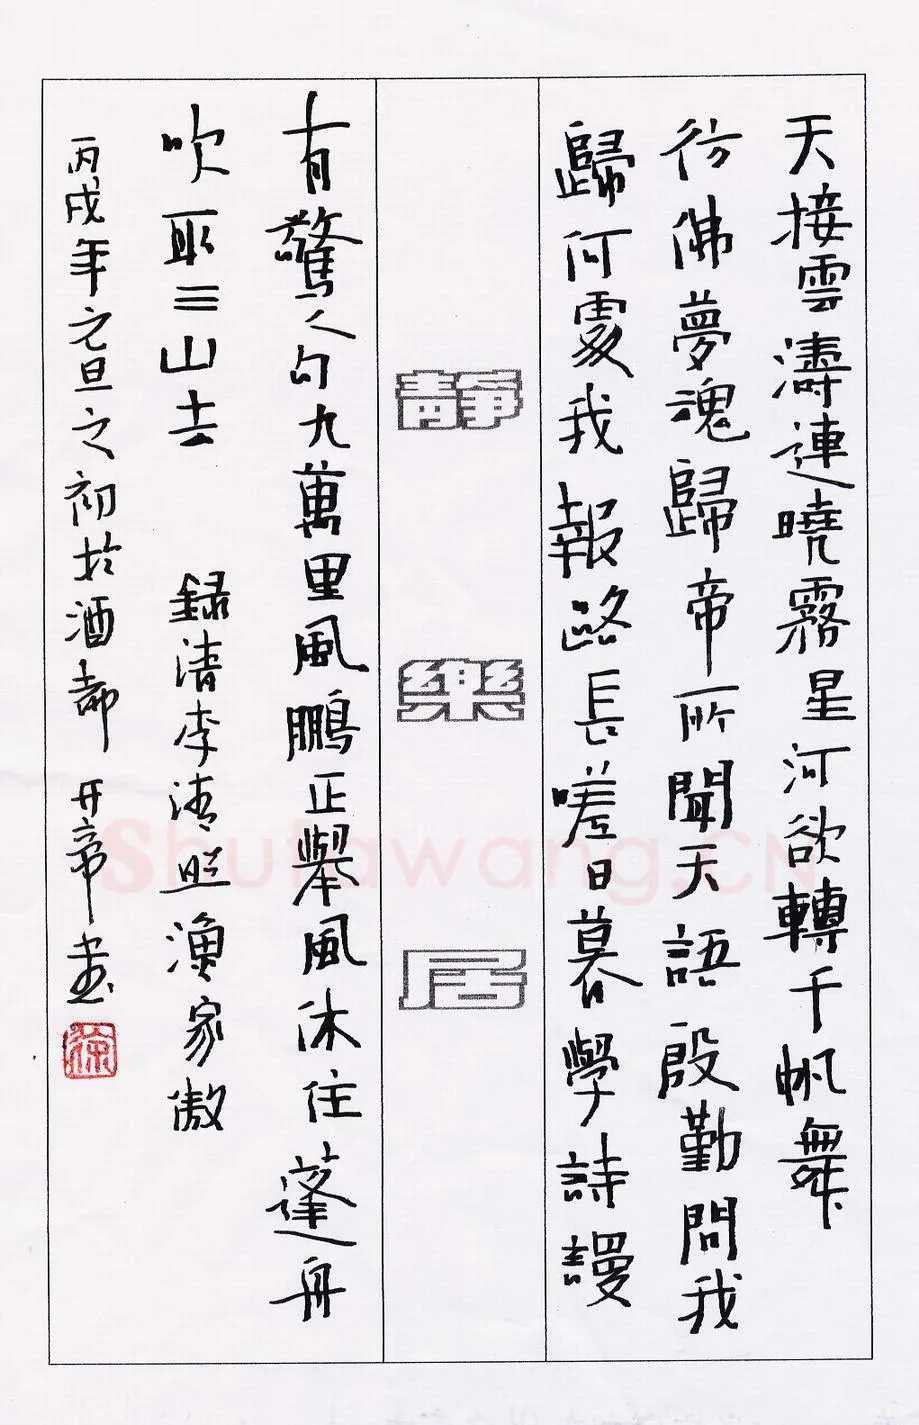 天接雲濤連曉霧星河欲轉千帆舞
彷佛夢魂歸帝所聞天語殷勤問我
歸何處我報路長嗟日暮學詩謾
靜樂居
有驚人句九萬里風鵬正舉風休住蓬舟
吹取三山去 録清李清照漁家傲
丙戌年元旦之初於酒都 开帝書
Shufawang.CN